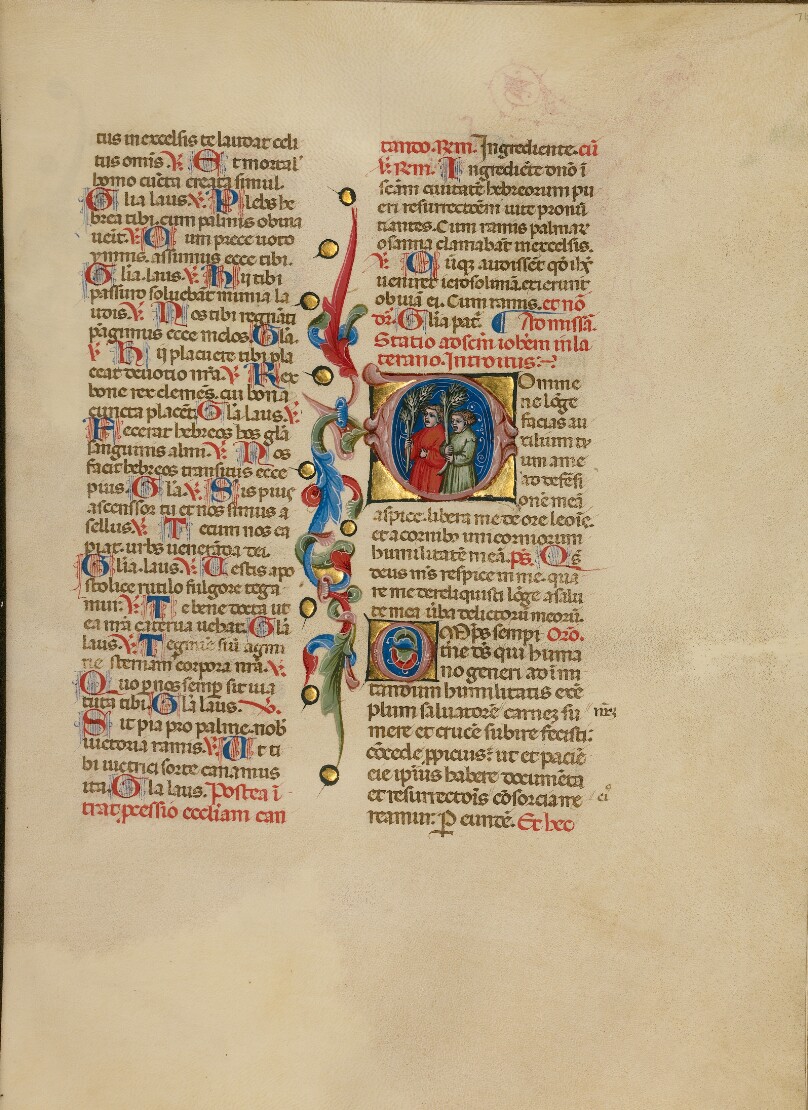 tus in excelsis te laudat celi
tus omis. V. Et mortal'
homo cūcta creata simul.
Glīa laus. V. Plebs he
brea tibi cum palmis obuia
ueīt. V. Cum prece uoto
ymnis. assumus ecce tibi.
Glīa. laus. V. Hii tibi
passuro soluebāt munia la
udis. V. Nos tibi regnāti
pāgimus ecce melos. Glā.
V. Hii placuere tibi pla
ceat deuotio nr̄a. V. Rex
bone rex clemēs. cui bona
cuncta placēt. Glā laus. V.
Fecerat hebreos hos glā
sanguinis almi. V. Nos
facit hebreos transitus ecce
pius. Glā. V. Sis pius
ascenssor tu et nos simus a
sellus. V. Tecum nos ca
piat. urbs uenerāda dei.
Glīa. laus. V. Uestis apo
stolice rutilo fulgore tega
mur. V. Te bene docta ut
ea nr̄a caterua uehat. Glā
laus. V. Tegmīe siū agmi
ne sternam corpora nr̄a. V.
Quo p nos semp sit uia
tuta tibi. Glā laus. V.
Sit pia pro palme nob̄
uictoria ramis. V. Ut ti
bi uictrici sorte canamus
ita. Glā laus. Postea ī
trat p̄cessio eccliam can
tando. Rm. Ingrediente. cū
V. Rm. Ingrediēte dnō ī
scām ciuitatē hebreorum pu
eri resurrectōem uite pronū
tiantes. Cum ramis palmaR
osanna clamabāt in excelsis.
V. Cūqꝫ audissēt qd̄ ihs̄
ueniret ierosolimā. exierunt
obuiā ei. Cum ramis. et nō
dr̄. Glīa pat̄. Ad missā.
Statio ad scm̄ iohēm in la
terano. Introitus.
Domine
ne lōge
facias au
xilium tu
um a me
ad defēsi
onē meā
aspice. libera me de ore leoīs.
et a cornibꝫ unicorniorum
humilitatē meā. ps. Ds̄
deus ms̄ respice in me. qua
re me dereliquisti lōge a salu
te mea uba delictorū meorū.
Omps̄ sempi Oro.
tne ds̄ qui huma
no generi ad imi
tandum humilitatis exē
plum saluatorē carneꝫ su
nr̄ꝫ
mere et crucē subire fecisti:
cōcede ppicius: ut et paciē
cie ipīus habere documēta
et resurrectoīs cōsorcia me
ei
reamur. P eundē. Et hec